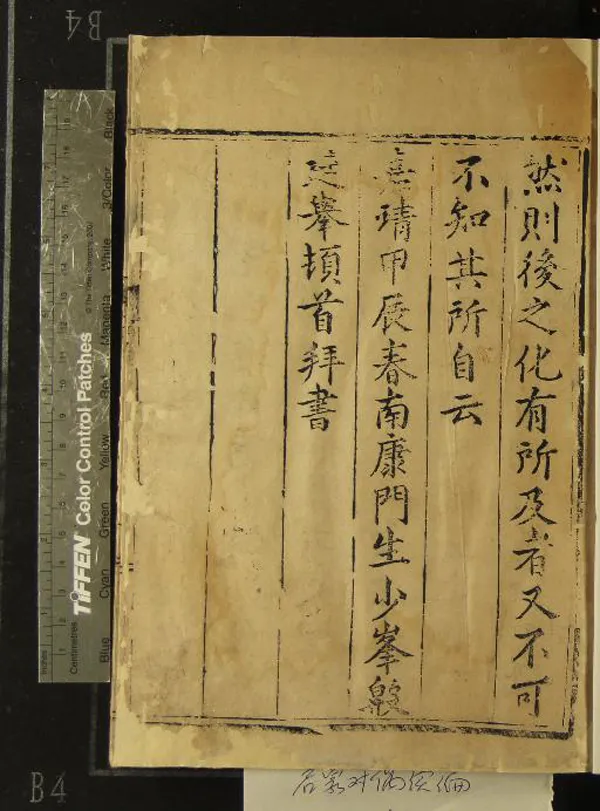 然則後之化有所及者又不可
不知其所自云
嘉靖甲辰春南康門生少峯殷
從舉頓首拜書
B4
B4
TIFFEN Color Control Patches
© The Tiffen Company, 2007
Inches
Centimetres
Blue Cyan Green Yellow Red Magenta White 3/Color Black